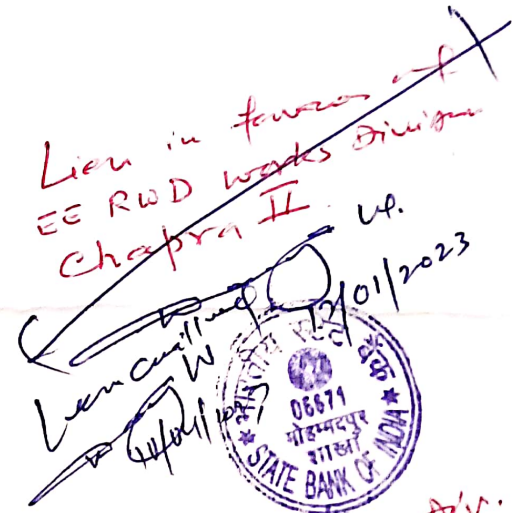 Lien in favour of
EE RWD works Division
Chapra II
12/01/2023
Lien
भारतीय स्टेट बैंक
06671
मोहम्मदपुर
शाखा
STATE BANK OF INDIA